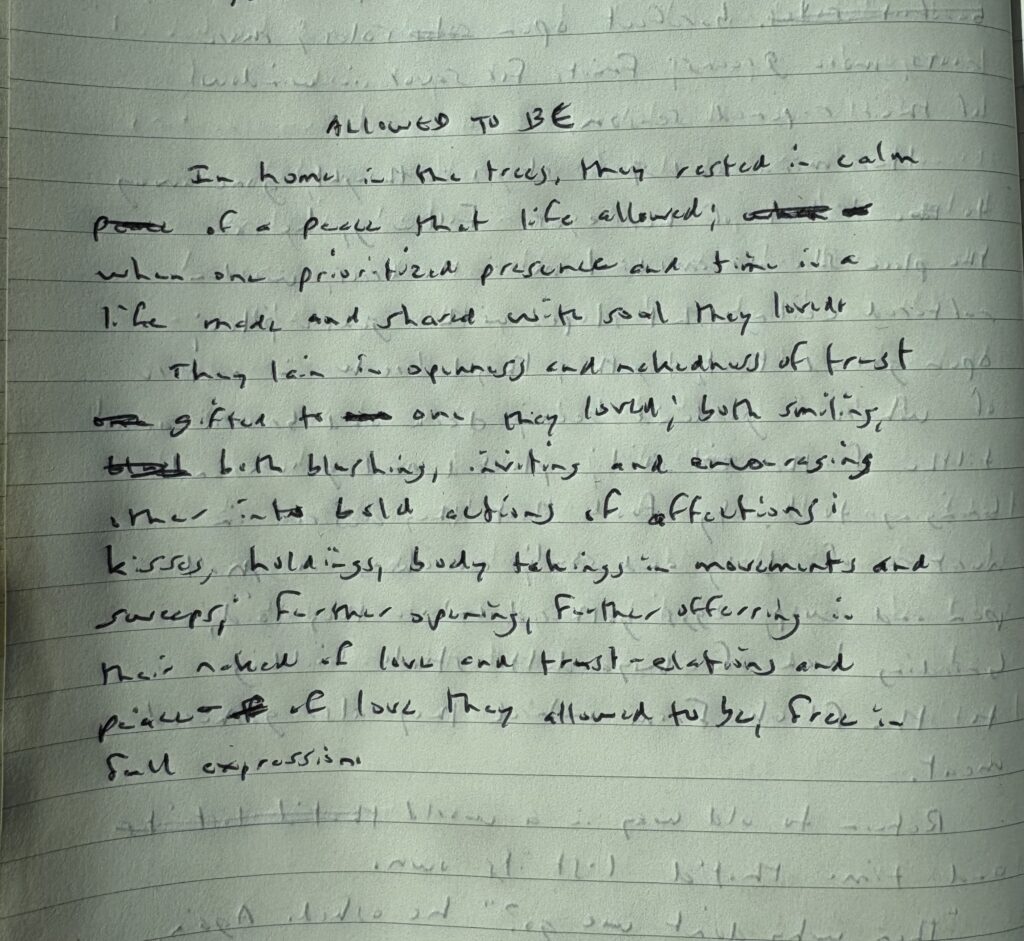 ALLOWED TO BE
In home in the trees, they rested in calm
of a peace that life allowed;
when one prioritized presence and time in a
life made and shared with soul they loved.
They lain in openness and nakedness of trust
gifted to one they loved; both smiling,
both blushing, inviting and encouraging
other into bold actions of affections:
kisses, holdings, body takings in movements and
sweeps; further opening, further offerring in
their naked of love and trust-elations and
peace- of love they allowed to be, free in
full expression.